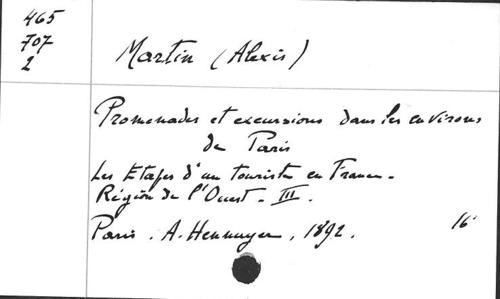 465
707
2
Martin (Alexis)
Promenades et excursions dans les environs
de Paris
Les Etapes d'un touriste en France.
Région de l'Ouest. III.
Paris. A. Hennuyer, 1892. 16°